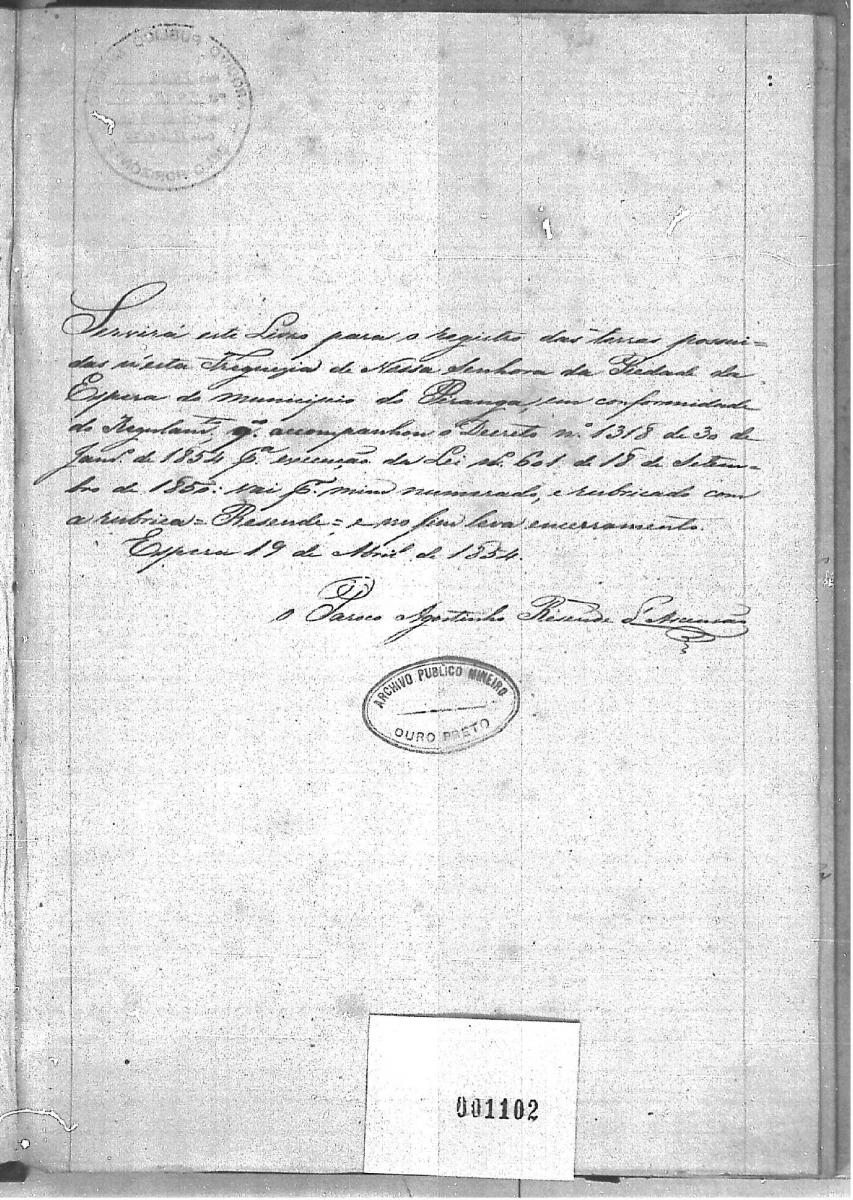 Servirá este Livro para o registro das terras possui-
das n'esta Freguezia de Nossa Senhora da Piedade da
Espera do municipio do Piranga, em conformidade
do Regulamt.º, q̃. accompanhou o Decreto nº. 1318 de 30 de
Janrº. de 1854 pª. execução da Lei nº. 601. de 18 de Setem-
bro de 1850: vai pr. mim numerado, e rubricado com
a rubrica = Resende = e no fim leva encerramento.
Espera 19 de Abril de 1854.
O Paroco Agostinho Resende d'Ascensão
ARCHIVO PUBLICO MINEIRO
OURO PRETO
001102